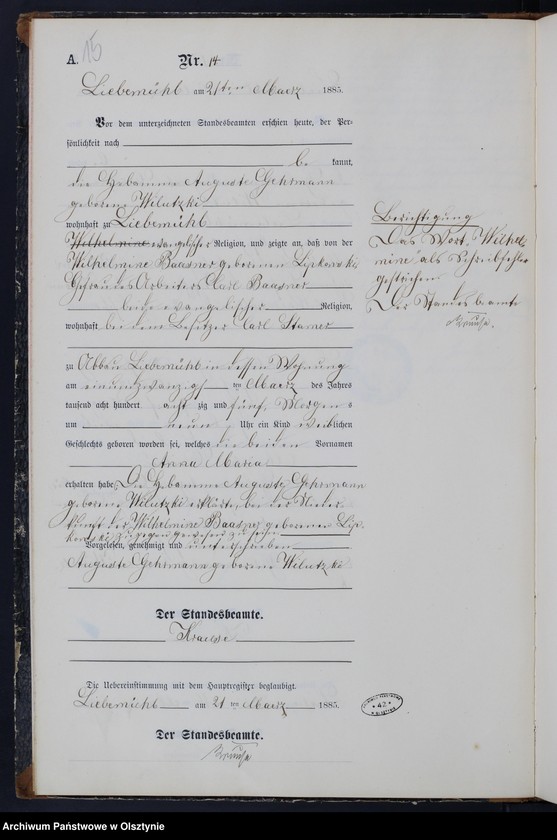 A. 15 Nr. 14
Liebemühl am 21ten Maerz 1885.
Vor dem unterzeichneten Standesbeamten erschien heute, der Per-
sönlichkeit nach
be kannt,
die Hebamme Auguste Gehrmann
geborene Wilutzki
wohnhaft zu Liebemühl
Wilhelmine evangelischer Religion, und zeigte an, daß von der
Wilhelmine Baasner geborenen
Ehefrau des Arbeiters Carl Baasner
beide evangelischer Religion,
wohnhaft bei dem Besitzer Carl
zu Abbau Liebemühl in dessen Wohnung
am einundzwanzigsten Maerz des Jahres
tausend acht hundert achtzig und fünf, Morgens
um neun Uhr ein Kind weiblichen
Geschlechts geboren worden sei, welches die beiden Vornamen
Anna Maria
erhalten habe. Die Hebamme Auguste Gehrmann
geborene Wilutzki erklärte, bei der Nieder-
kunft der Wilhelmine Baasner geborenen
zugegen gewesen zu sein
Vorgelesen, genehmigt und unterschrieben
Auguste Gehrmann geborene Wilutzki
Der Standesbeamte.
Krause
Die Uebereinstimmung mit dem Hauptregister beglaubigt.
Liebemühl am 21 ten Maerz 1885.
Der Standesbeamte.
Krause
Berichtigung
Das Wort "Wilhel-
mine" als Schreibfehler
gestrichen
Der Standesbeamte
Krause.
Archiwum Państwowe w Olsztynie